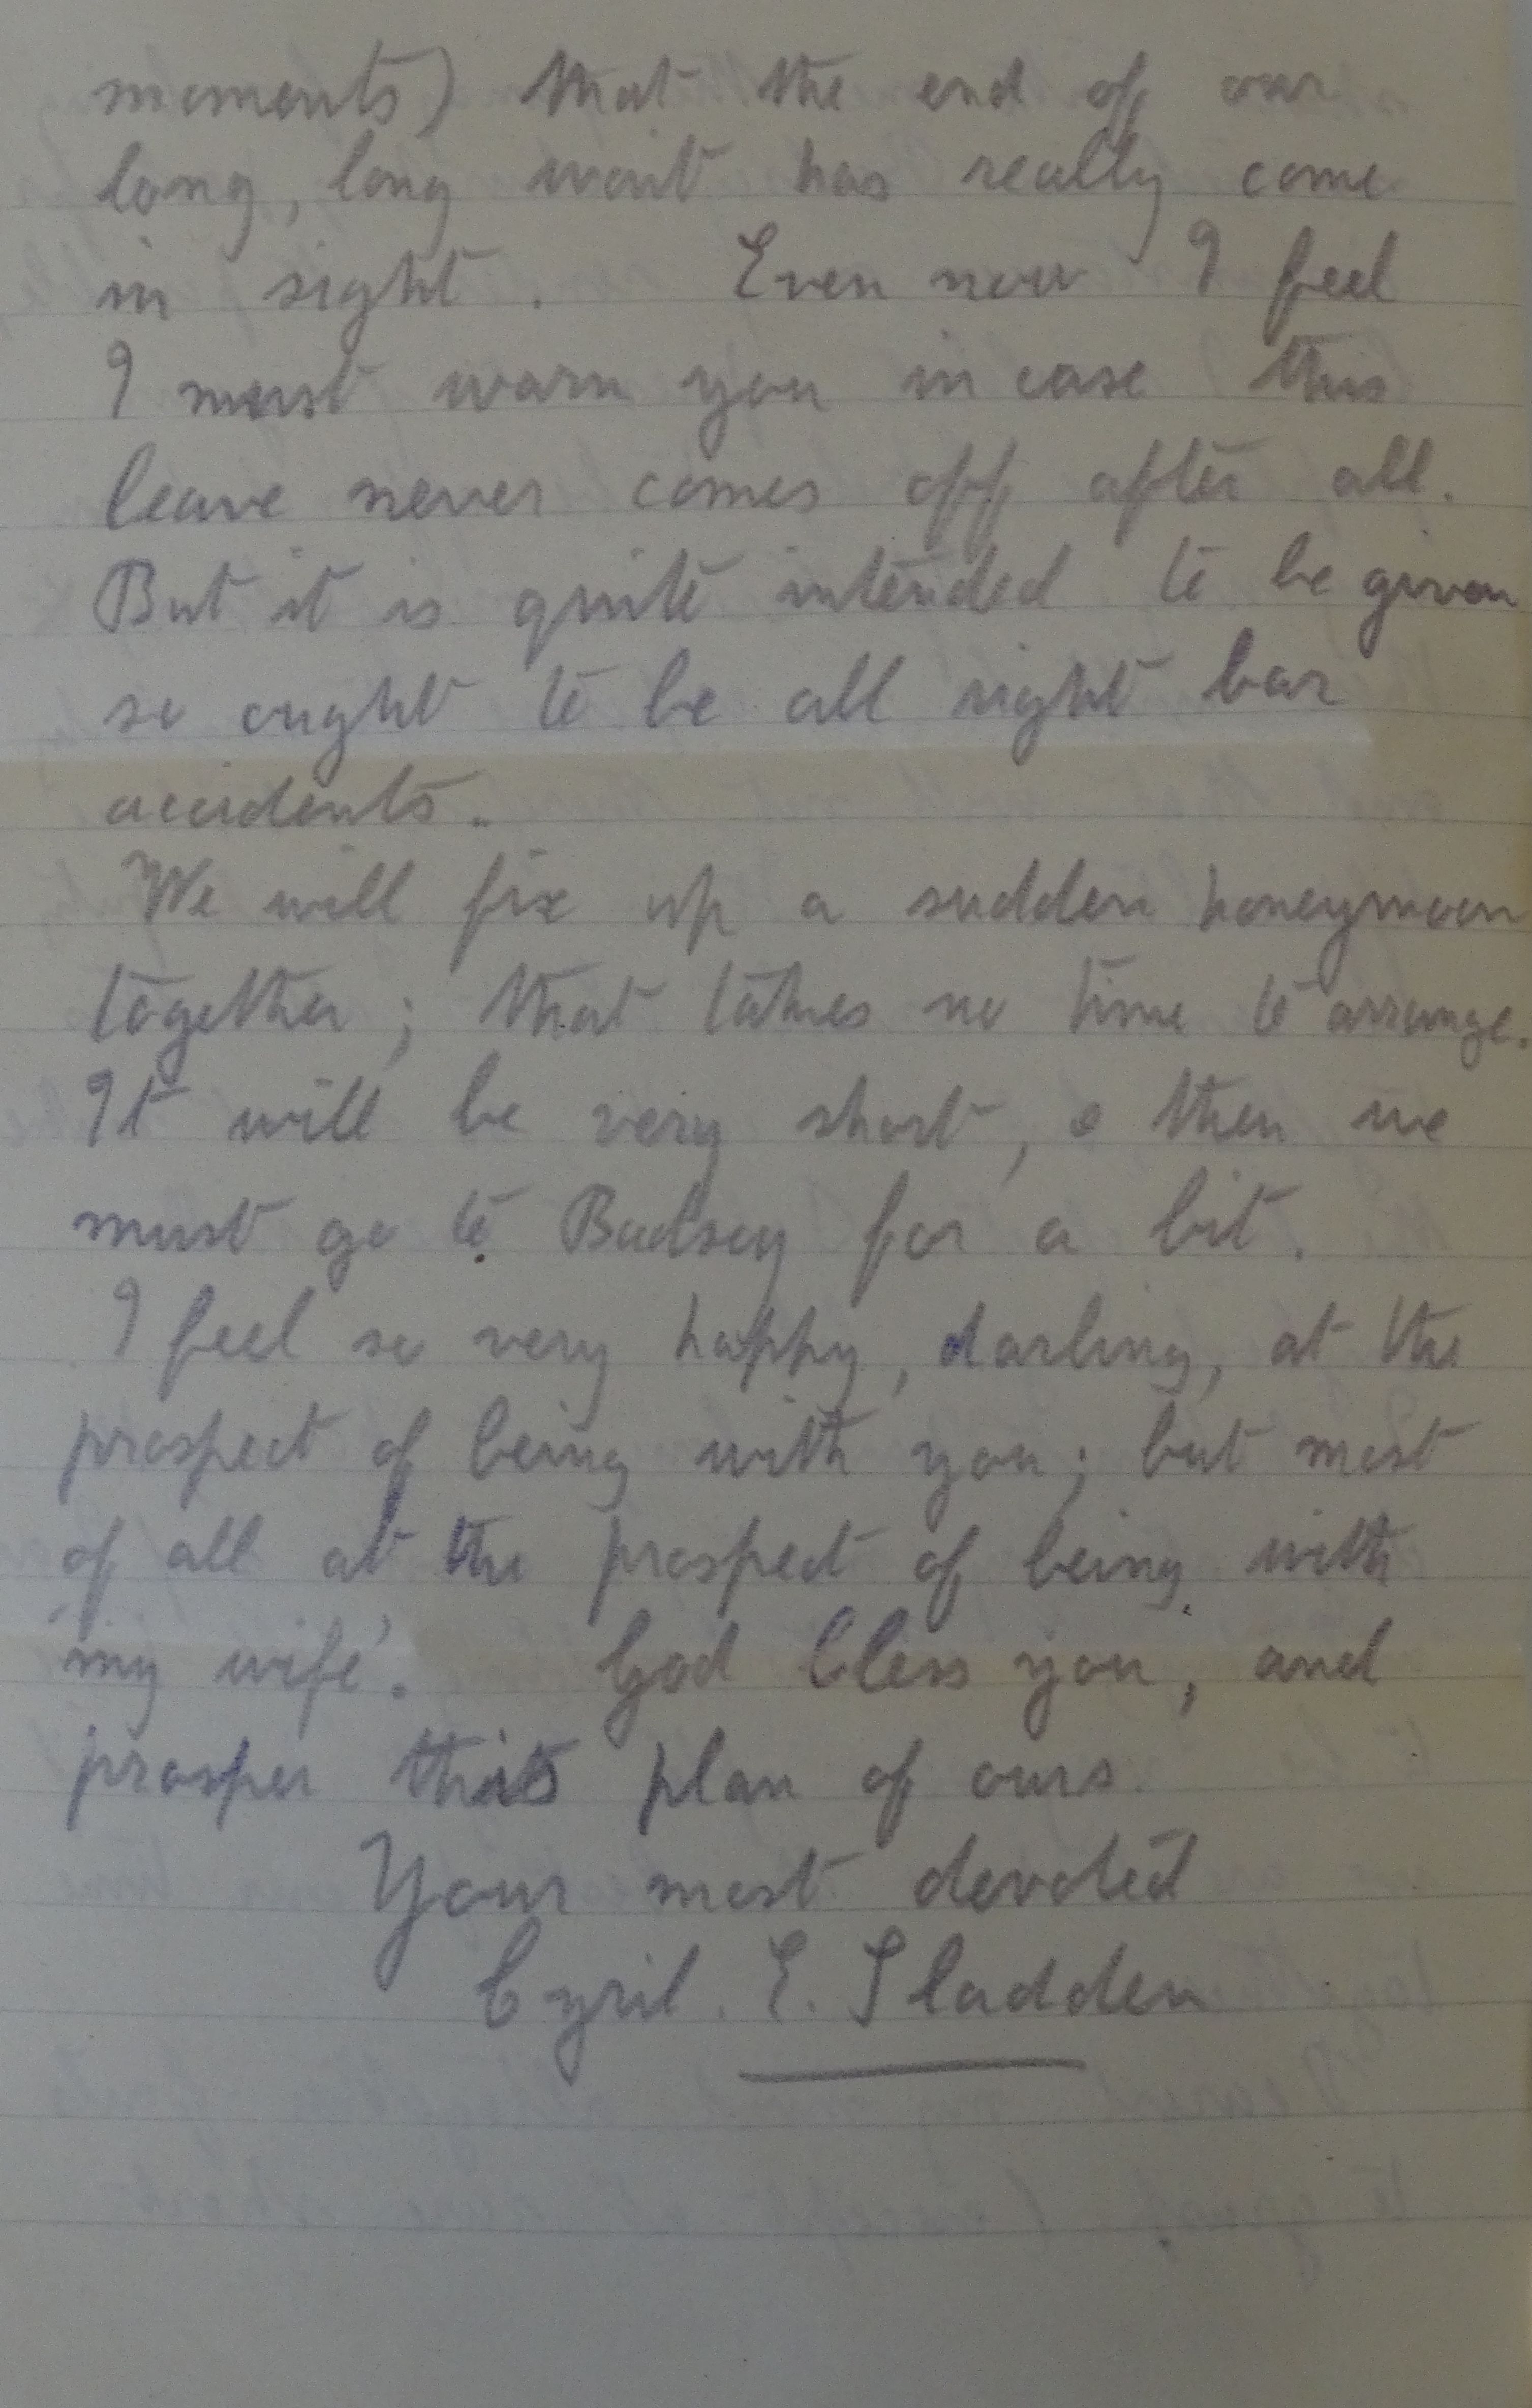 moments) that the end of our
long, long wait has really come
in sight. Even now I feel
I must warn you in case this
leave never comes off after all.
But it is quite intended to be given
so ought to be all right bar
accidents.
We will fix up a sudden honeymoon
together; that takes no time to arrange.
It will be very short, & then we
must go to Badsey for a bit.
I feel so very happy, darling, at the
prospect of being with you; but most
of all at the prospect of being with
'my wife'. God bless you, and
prosper this plan of ours.
Your most devoted
Cyril. E. Sladden